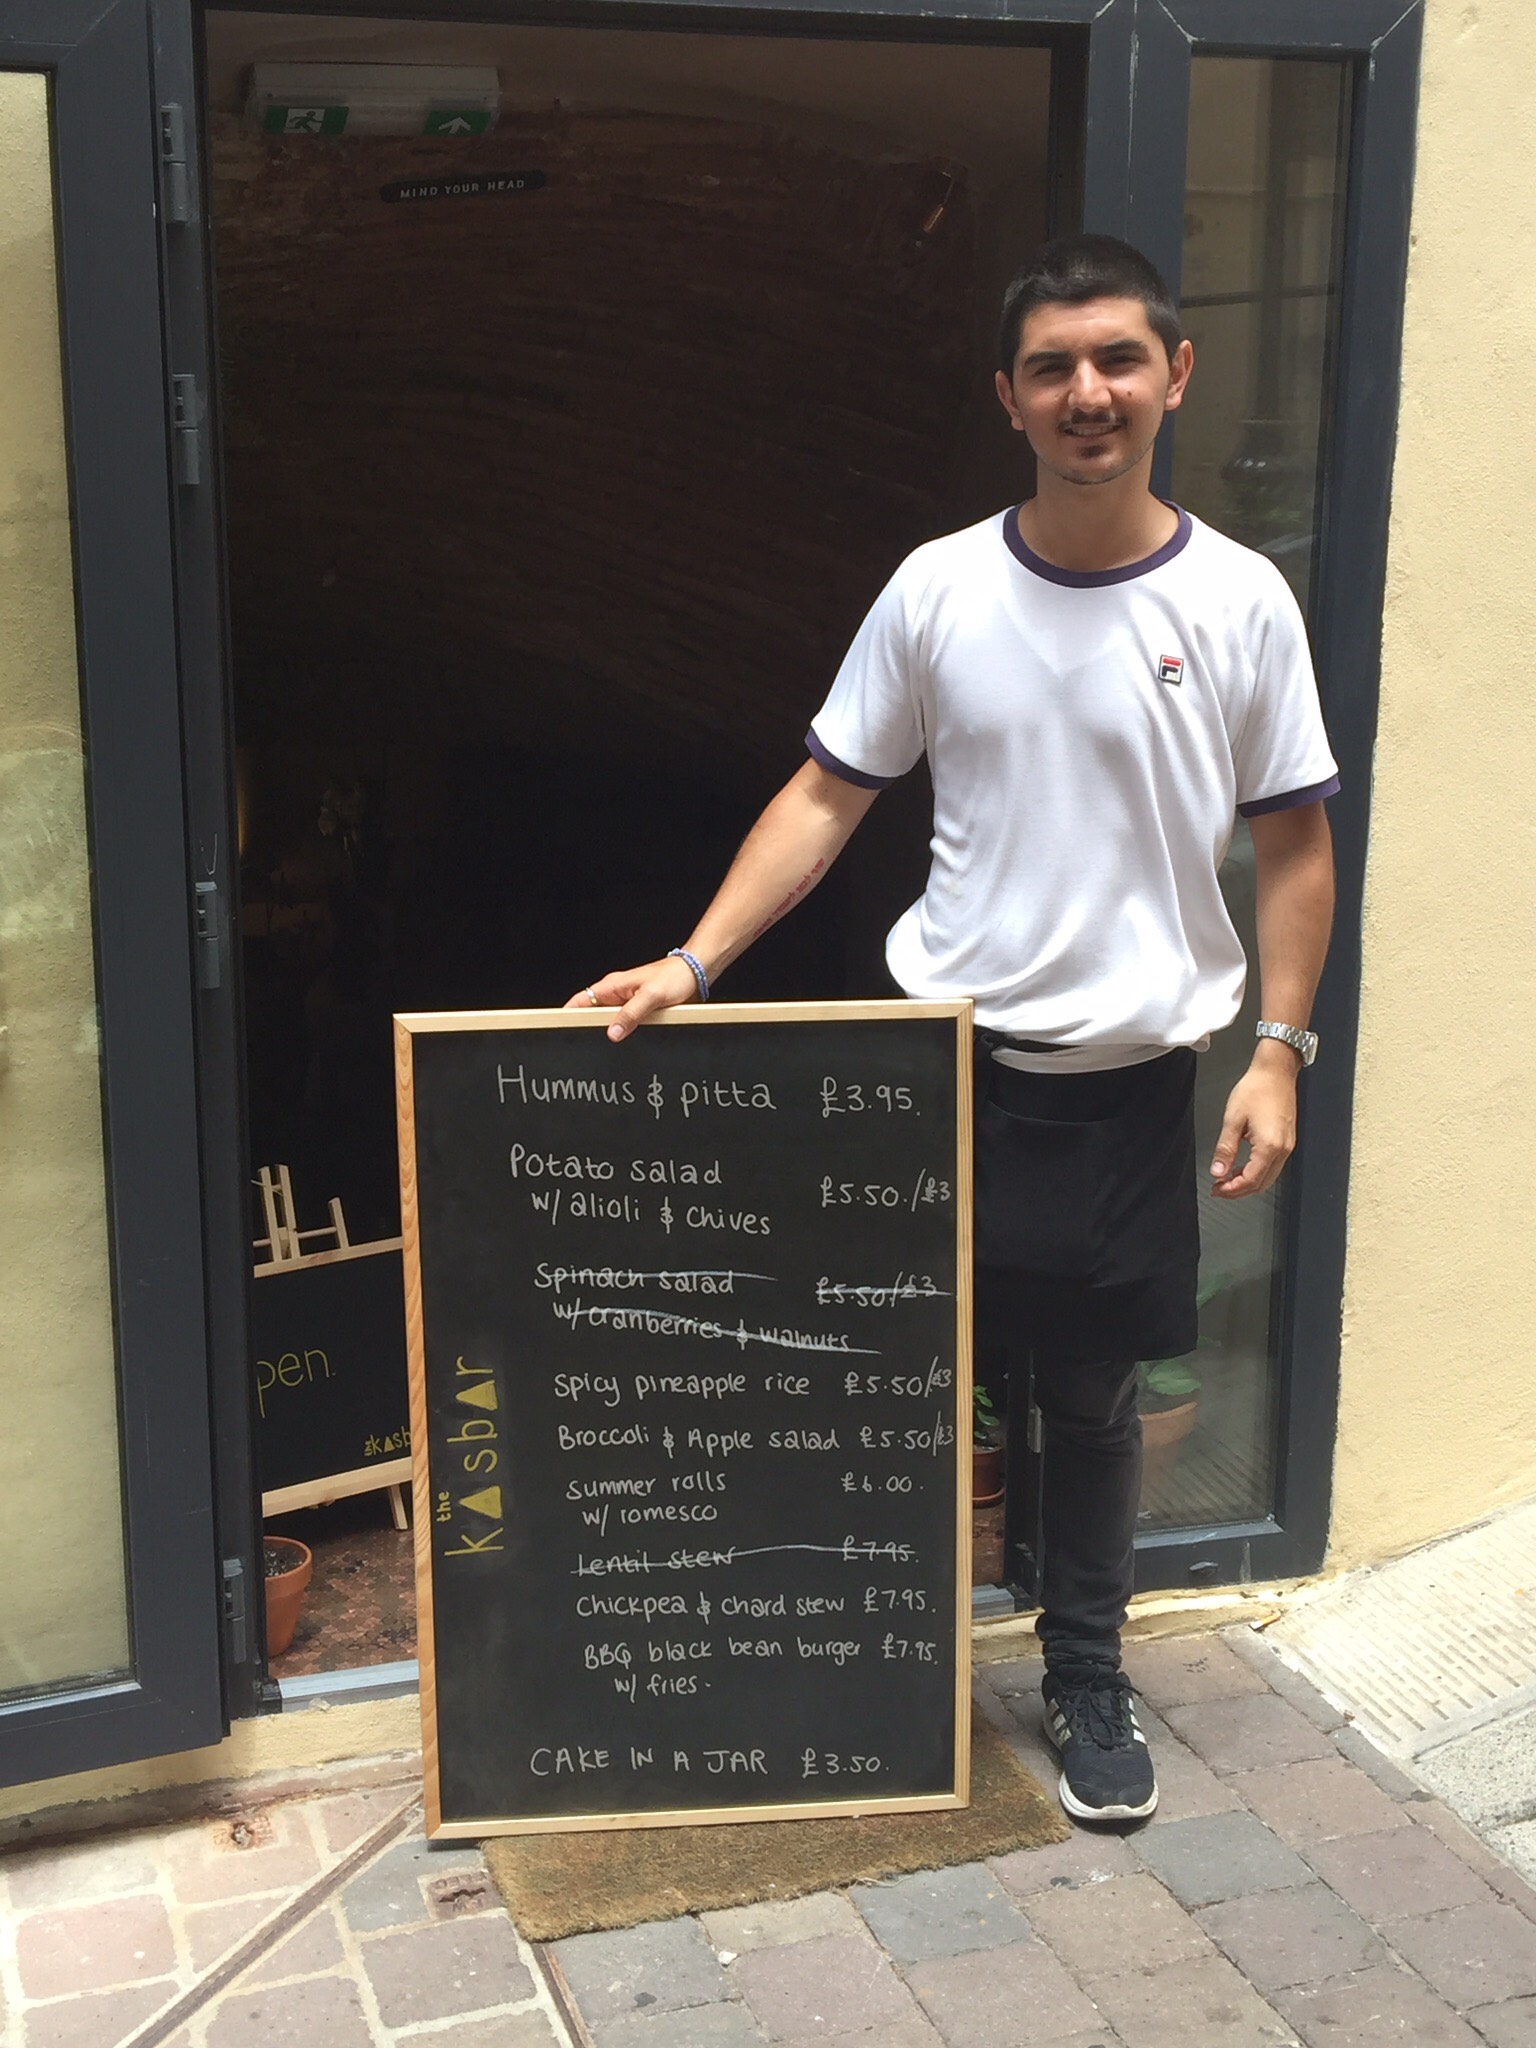 MIND YOUR HEAD
Hummus & pitta £3.95.
Potato salad
w/ alioli & chives £5.50./£3
Spinach salad £5.50/£3
w/ cranberries & walnuts
Spicy pineapple rice £5.50/£3
Broccoli & Apple salad £5.50/£3
Summer rolls £6.00.
w/ romesco
Lentil stew £7.95.
Chickpea & chard stew £7.95.
BBQ black bean burger £7.95.
w/ fries.
CAKE IN A JAR £3.50.
the kasbar
pen.
the kasb
F